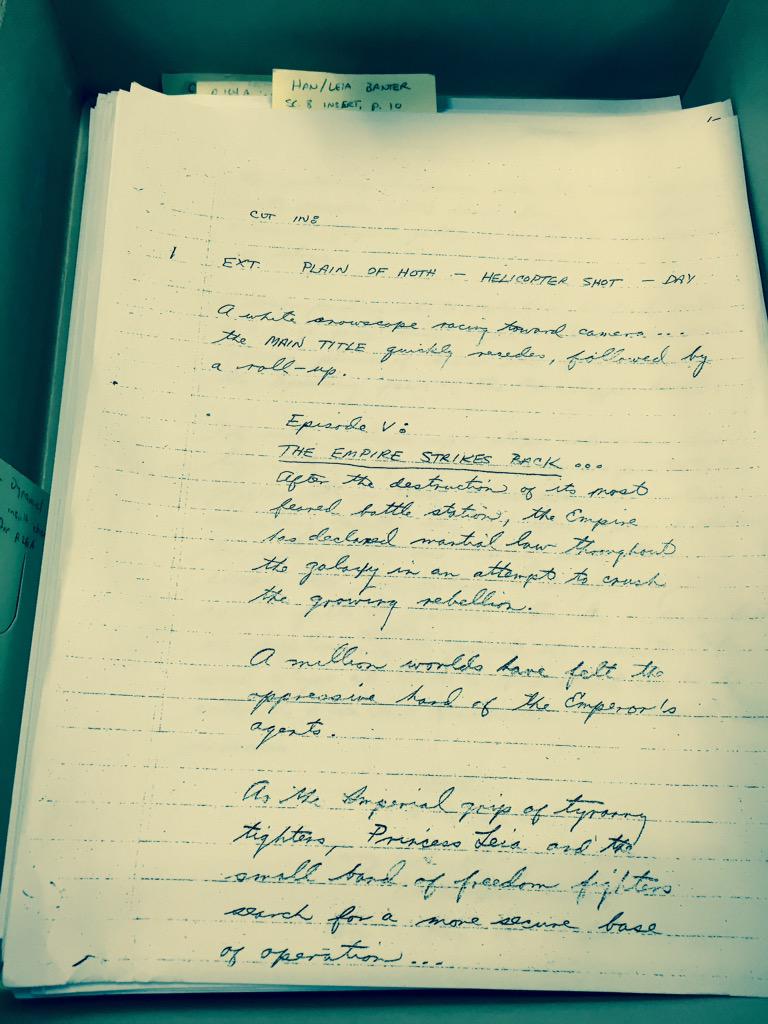 HAN/LEIA BANTER
SC. 8 INSERT, P. 10
1-
CUT IN:
1 EXT. PLAIN OF HOTH - HELICOPTER SHOT - DAY
A white snowscape racing toward camera ...
the MAIN TITLE quickly recedes, followed by
a roll-up.
Episode V:
THE EMPIRE STRIKES BACK ...
After the destruction of its most
feared battle station, the Empire
has declared martial law throughout
the galaxy in an attempt to crush
the growing rebellion.
A million worlds have felt the
oppressive hand of the Emperor's
agents.
As the Imperial grip of tyranny
tightens, Princess Leia and the
small band of freedom fighters
search for a more secure base
of operation ...